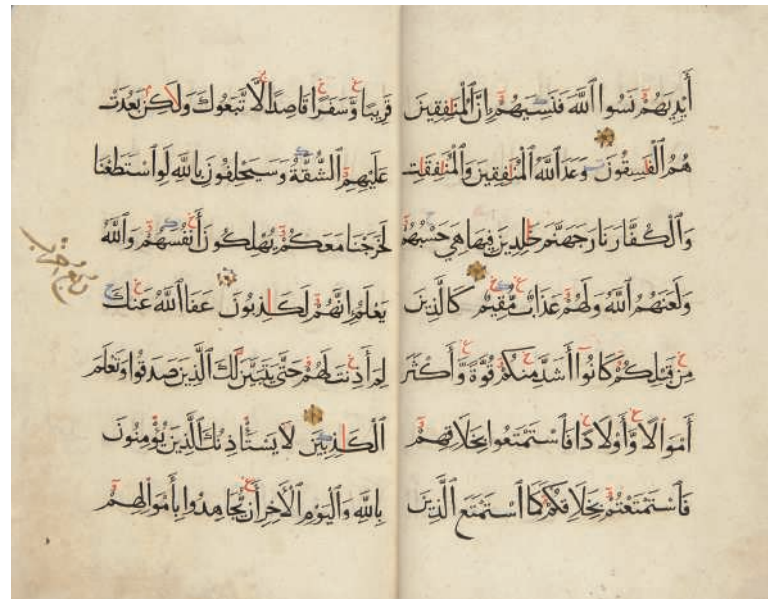 أَيْدِيَهُمْ نَسُوا اللَّهَ فَنَسِيَهُمْ إِنَّ الْمُنَٰفِقِينَ
هُمُ الْفَٰسِقُونَ وَعَدَ اللَّهُ الْمُنَٰفِقِينَ وَالْمُنَٰفِقَٰتِ
وَالْكُفَّارَ نَارَ جَهَنَّمَ خَٰلِدِينَ فِيهَا هِيَ حَسْبُهُمْ
وَلَعَنَهُمُ اللَّهُ وَلَهُمْ عَذَابٌ مُّقِيمٌ كَالَّذِينَ
مِنْ قَبْلِكُمْ كَانُوا أَشَدَّ مِنكُمْ قُوَّةً وَّأَكْثَرَ
أَمْوَالًا وَّأَوْلَادًا فَاسْتَمْتَعُوا بِخَلَاقِهِمْ
فَاسْتَمْتَعْتُمْ بِخَلَاقِكُمْ كَمَا اسْتَمْتَعَ الَّذِينَ
قَرِيبًا وَّسَفَرًا قَاصِدًا لَّاتَّبَعُوكَ وَلَٰكِنْ بَعُدَتْ
عَلَيْهِمُ الشُّقَّةُ وَسَيَحْلِفُونَ بِاللَّهِ لَوِ اسْتَطَعْنَا
لَخَرَجْنَا مَعَكُمْ يُهْلِكُونَ أَنْفُسَهُمْ وَاللَّهُ
يَعْلَمُ إِنَّهُمْ لَكَٰذِبُونَ عَفَا اللَّهُ عَنْكَ
لِمَ أَذِنْتَ لَهُمْ حَتَّىٰ يَتَبَيَّنَ لَكَ الَّذِينَ صَدَقُوا وَتَعْلَمَ
الْكَٰذِبِينَ لَا يَسْتَأْذِنُكَ الَّذِينَ يُؤْمِنُونَ
بِاللَّهِ وَالْيَوْمِ الْآخِرِ أَنْ يُّجَاهِدُوا بِأَمْوَالِهِمْ